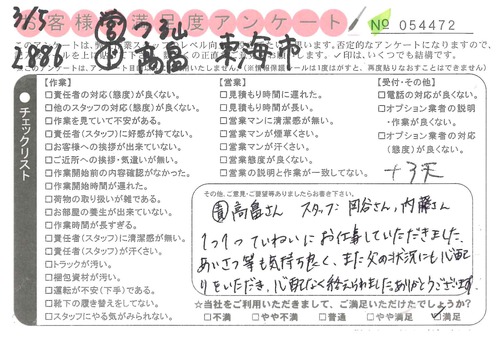 お客様満足度アンケート
No 054472
3/5
2886
東海市
高畠
チェックリスト
【作業】
□責任者の対応(態度)が良くない。
□他のスタッフの対応(態度)が良くない。
□作業を見ていて不安がある。
□責任者(スタッフ)に好感が持てない。
□お客様への挨拶が出来ていない。
□ご近所への挨拶・気遣いが無い。
□作業開始前の内容確認がなかった。
□作業開始時間が遅れた。
□荷物の取り扱いが雑である。
□お部屋の養生が出来ていない。
□作業時間が長すぎる。
□責任者(スタッフ)に清潔感が無い。
□責任者(スタッフ)が汗くさい。
□トラックが汚い。
□梱包資材が汚い。
□運転が不安(下手)である。
□靴下の履き替えをしてない。
□スタッフにやる気がみられない。
【営業】
□見積もり時間に遅れた。
□見積もり時間が長い。
□営業マンに清潔感が無い。
□営業マンが煙草くさい。
□営業マンが汗くさい。
□営業態度が良くない。
□営業の説明と作業が一致してない。
【受付・その他】
□電話の対応が良くない。
□オプション業者の説明
・作業が良くない。
□オプション業者の対応
(態度)が良くない。
その他、ご意見・ご要望等ありましたらお書き下さい。
高畠さん スタッフ: 岡谷さん,内藤さん
1つ1つていねいにお仕事していただきました。
あいさつ等も気持ち良く、また父の状況にも心配
りをいただき、心配なく終えられましたありがとうございます。
☆当社をご利用いただきまして、ご満足いただけたでしょうか?
□不満 □やや不満 □普通 □やや満足 ☑満足